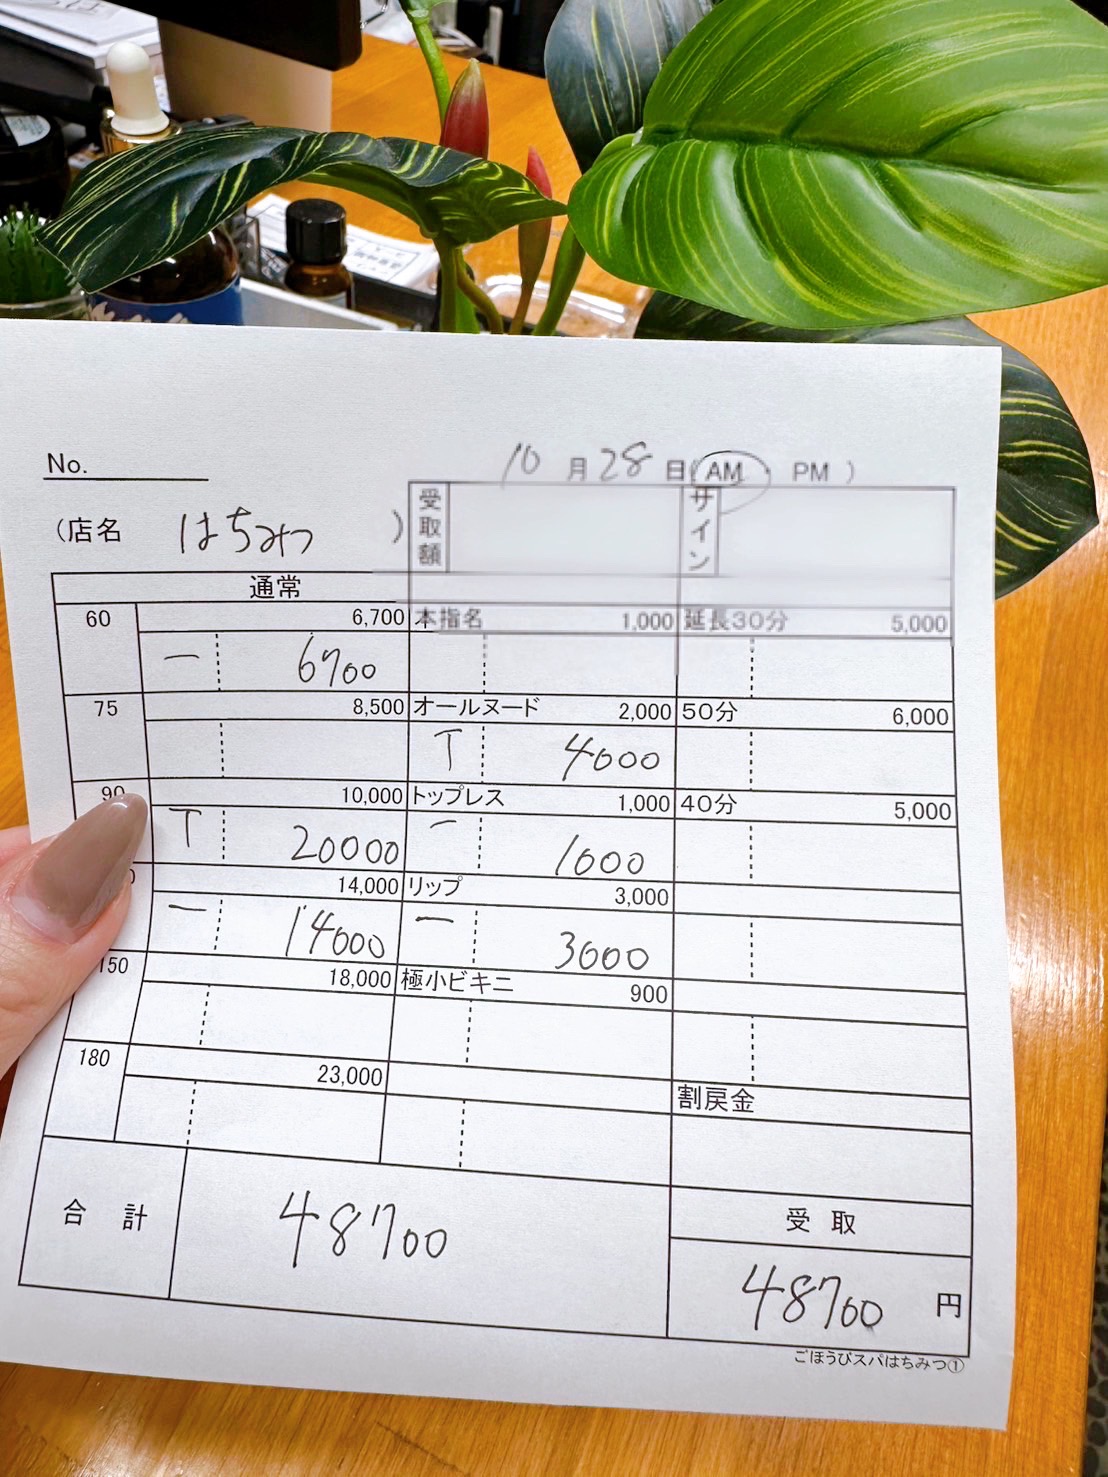 No.
10月28日(AM・PM)
(店名 はちみつ)
受取額
サイン
通常
60 6,700 本指名 1,000 延長30分 5,000
一 6700
75 8,500 オールヌード 2,000 50分 6,000
T 4000
90 10,000 トップレス 1,000 40分 5,000
T 20000 一 1000
14,000 リップ 3,000
一 14000 一 3000
150 18,000 極小ビキニ 900
180 23,000
割戻金
合計 48700
受取
48700 円
ごほうびスパはちみつ①